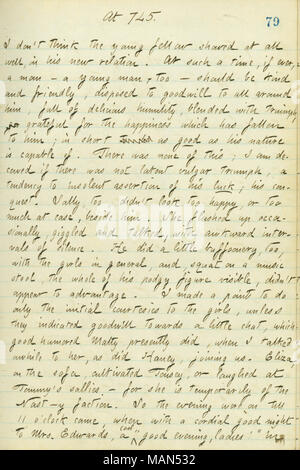 At 745.
79
I don't think the young fellow showed at all
well, in his new relation. At such a time, if ever,
a man - a young man, too - should be kind
and friendly, disposed to goodwill to all around
him, full of delicious humility, blended with triumph,
grateful for the happiness which has fallen
to him; in short as good as his nature
is capable of. There was none of this; I am de-
ceived if there was not latent vulgar triumph, a
tendency to insolent assertion of his luck; his con-
quest. Sally, too, didn't look too happy, or too
much at ease, beside him. She flushed up occa-
sionally, giggled and talked, with awkward inter-
vals of silence. He did a little buffoonery, too,
with the girls in general, and squat on a music
stool, the whole of his podgy figure visible, didn't
appear to advantage. I made a point to do
only the initial courtesies to the girls, unless
they indicated goodwill towards a little chat, which
good humored Matty presently did, when I talked
awhile to her, as did Haney, joining us. Eliza,
on the sofa, cultivated Tousey, or laughed at
Tommy's sallies - for she is temporarily of the
Nast-y faction. So the evening wore on till
11 o'clock came, when with a cordial good night
to Mrs. Edwards, a "good evening, ladies!" in
alamy
Image ID: MAN532
www.alamy.com